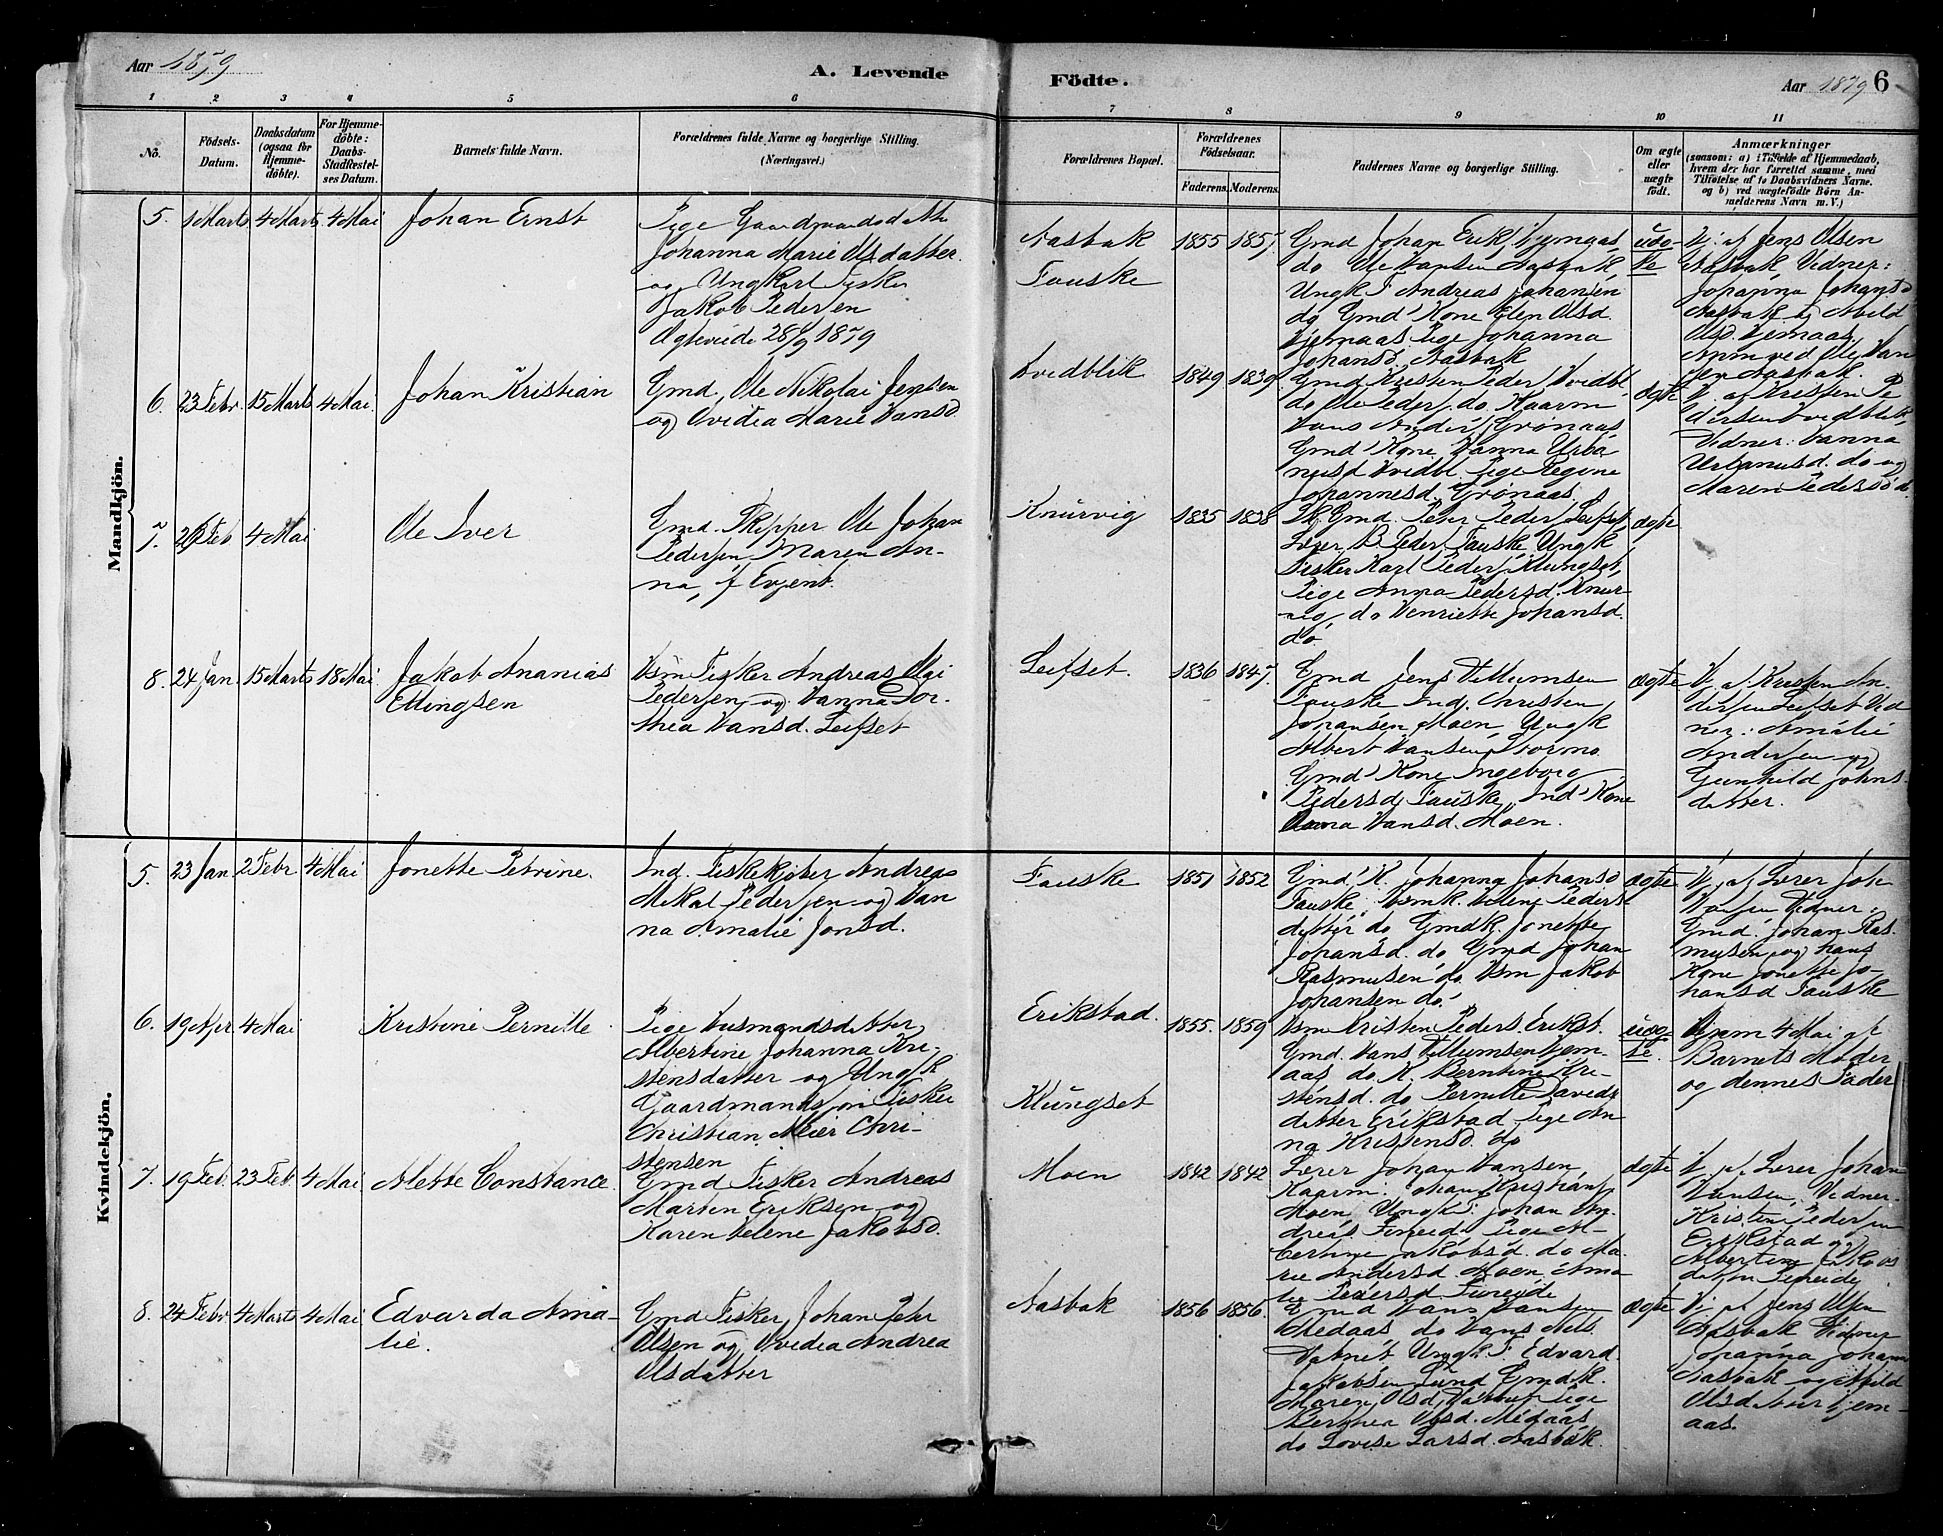 Aar 1879
A. Levende
Födte.
Aar 1879
6
1 2 3 4 5 6 7 8 9 10 11
No.
Födsels-
Datum.
Daabsdatum
(ogsaa for
Hjemme-
döbte).
For Hjemme-
döbte:
Daabs-
Stadfæstel-
ses Datum.
Barnets fulde Navn.
Forældrenes fulde Navne og borgerlige Stilling.
(Næringsvei.)
Forældrenes Bopæl.
Forældrenes
Födselsaar.
Faderens.
Moderens.
Faddernes Navne og borgerlige Stilling.
Om ægte
eller
uægte
födt.
Anmærkninger
(saasom: a) i Tilfælde af Hjemmedaab,
hvem der har forrettet samme, med
Tilföielse af to Daabsvidners Navne.
og b) ved uægtefödte Börn An-
melderens Navn m.V.)
Mandkjön.
5. 1 Marts 4 Marts 4 Mai
Johan Ernst
Pige Gaardmandsdatter
Johanna Marie Olsdatter
og Ungkarl Fisker
Jakob Pedersen
Aasbak
Fauske
1855 1857
Gmd Johan Erik
do Ole Hansen Aasbak,
Ungk F Andreas Johansen
do Gmd Kone Elen Olsd.
Hjemaas Pige Johanna
Johansd. Aasbak
uæg-
te
Hj. af Jens Olsen
Aasbak, Vidner:
Johanna Johansd
Aasbak og
Olsd. Hjemaas,
Anm ved Ole Han
sen Aasbak.
6. 23 Febr. 15 Marts 4 Mai.
Johan Kristian
Gmd, Ole Nikolai Jensen
og Ovidia Marie Hansd.
Hvidblik
1849 1839
Gmd Kristen Peder Hvidbl
do Ole Peders. do. Kaarm
Hans Ander Grønaas,
Gmd Kone Hanna Urba
nusd Hvidbl. Pige Regine
Johannesd. Grønaas.
ægte
H. af Kristen Pe
dersen Hvidblik,
Vidner: Hanna
Urbanusd. do og
Maren Pedersd. d.
7. 26 Feb 4 Mai
Ole Iver
Gmd. Skipper Ole Johan
Pedersen, Maren An-
na, f Evjent.
Knurvig
1835 1838
Gmd. Peter Peder Leifset,
Lærer B Peder Fauske Ungk
Fisker Karl Peder Klungset,
Pige Anna Pedersd. Knur-
vig, do Henriette Johansd.
do
ægte
8. 24 Jan. 15 Marts 18 Mai.
Jakob Ananias
Ellingsen
Hsm Fisker Andreas Olai
Pedersen og Hanna Dor-
thea Hansd. Leifset
Leifset.
1836 1847.
Gmd Jens Villumsen
Fauske Ind. Christen
Johansen Moen, Ungk
Albert Hansen Stormo
Gmd Kone Ingeborg
Pedersd, Fauske, Ind Kone
Anna Hansd. Moen.
ægte
H. af Kristen An-
dersen Leifset Vid
ner: Amalie
Andersen og
Gunhild Johns-
datter.
Kvindekjön.
5. 23 Jan 2 Febr 4 Mai
Jonette Petrine.
Ind. Fiskekjøber Andreas
Mikal Pedersen og Han
na Amalie Jonsd.
Fauske
1851 1852
Gmd K. Johanna Johansd
Fauske, Hsmk. Helene Peders
datter do Gmdk. Jonette
Johansd. do Gmd Johan
Rasmusen do. Hsm Jakob
Johansen do.
ægte
H. af Lærer Joh
Hansen Vidner:
Gmd. Johan Ras-
musen og hans
Kone Jonette Jo-
hansd Fauske
6. 19 Apr 4 Mai
Kristine Pernille.
Pige Husmandsdatter
Albertine Johanna Kri-
stensdatter og Ungk
Gaardmandssøn Fisker
Christian Meier Chri-
stensen
Erikstad.
Klungset
1855. 1859
Hsm Kristen Peders. Erikst.
Gmd. Hans Villumsen Hjem-
aas do K. Berntine Kri-
stensd. do Pernille Davids
datter Erikstad Pige An
na Kristensd. do
uæg-
te.
Hjem 4 Mai af
Barnets Moder
og dennes Fader
7. 19 Feb. 23 Feb 4 Mai
Alette Constance
Gmd Fisker Andreas
Martin Eriksen og
Karen Helene Jakobsd.
Moen
1842 1842
Lærer Johan Hansen,
Kaarm. Johan Kristians
Moen, Ungk. Johan An-
dreas Fineide Pige Al-
bertine Jakobsd. do Ma-
rie Andersd Moen, Ama
lie Pedersd Fineide
ægte
H. af Lærer Johan
Hansen, Vidner.
Kristen Pedersen
Erikstad og
Albertine Jakobs
datter Fineide
8. 24 Febr 4 Marts 4 Mai
Edvarda Ama-
lie.
Gmd Fisker, Johan Peter
Olsen og Ovidia Andrea
Olsdatter
Aasbak
1856 1856.
Gmd Hans Hansen
Medaas, do Hans Nils.
Vatnet Ungk. F Edvard
Jakobsen Lund Gmdk.
Maren Olsd, Pige
Berthea Olsd. Medaas
do Lovise Larsd. Aasbak.
ægte
H. af Jens Olsen
Aasbak Vidner
Johanna Johans
Aasbak og
Olsdatter Hjem-
aas.